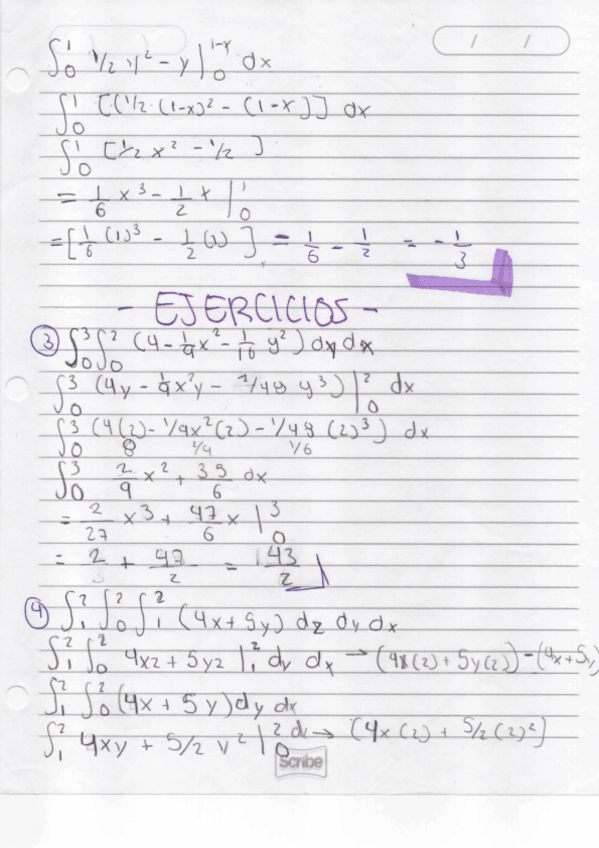 ∫₀¹ 1/2 y² - y |₀^{1-x} dx
∫₀¹ [(1/2 (1-x)² - (1-x)] dx
∫₀¹ [1/2 x² - 1/2]
= 1/6 x³ - 1/2 x |₀¹
= [1/6 (1)³ - 1/2 (1)] = 1/6 - 1/2 = - 1/3
- EJERCICIOS -
③ ∫₀³ ∫₀² (4 - 1/9 x² - 1/16 y²) dy dx
∫₀³ (4y - 1/9 x² y - 1/48 y³) |₀² dx
∫₀³ (4(2) - 1/9 x² (2) - 1/48 (2)³) dx
8 2/9 1/6
∫₀³ 2/9 x² + dx
= 2/27 x³ + 47/6 x |₀³
= 2 + 47/2 = 43/2
④ ∫₁² ∫₀² ∫₁² (4x + 5y) dz dy dx
∫₁² ∫₀² 4xz + 5yz |₁² dy dx → (4x(2) + 5y(2)) - (4x + 5y)
∫₁² ∫₀² (4x + 5y) dy dx
∫₁² 4xy + 5/2 y² |₀² dx → (4x(2) + 5/2 (2)²)
Scribe